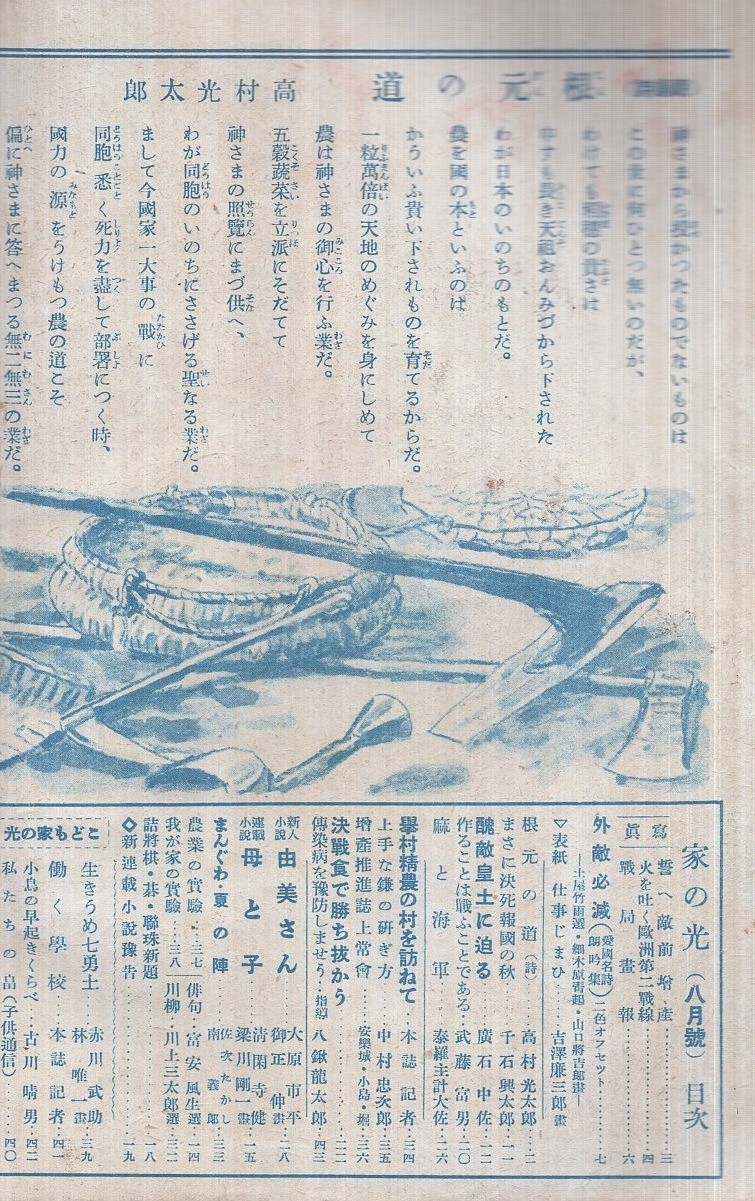 根元の道　高村光太郎
神さまから　かつたものでないものは
この世に何ひとつ無いのだが、
わけても　の貴さは
申すも長き天祖おんみづから下された
わが日本のいのちのもとだ。
農を國の本といふのは
かういふ貴い下されものを育てるからだ。
一粒萬倍の天地のめぐみを身にしめて
農は神さまの御心を行ふ業だ。
五穀蔬菜を立派にそだてて
神さまの照覽にまづ供へ、
わが同胞のいのちにささげる聖なる業だ。
まして今國家一大事の戰に
同胞悉く死力を盡して部署につく時、
國力の源をうけもつ農の道こそ
偏に神さまに答へまつる無二無三の業だ。
家の光（八月號）目次
寫眞
誓へ敵前增産……三
火を吐く歐洲第二戰線……四
戰局畫報……六
外敵必滅（愛國名詩朗吟集）二色オフセット……七
―土屋竹雨選・細木原青起・山口將吉郎畫―
▽表紙 仕事じまひ……吉澤廉三郎畫
根元の道（詩）……高村光太郎…二
まさに決死報國の秋……千石興太郎…一一
醜敵皇土に迫る……廣石中佐…一二
作ることは戰ふことである…武藤富男…二〇
麻と海軍……泰羅主計大佐…二六
擧村精農の村を訪ねて……本誌記者…三四
上手な鎌の研ぎ方……中村忠次郎…三五
增産推進誌上常會……安樂城・小島・堀…三六
決戰食で勝ち拔かう……二二
傳染病を豫防しませう…指導 八鍬龍太郎…四三
新人小說 由美さん……大原市平 御正伸畫…二八
連載小說 母と子……淸閑寺健 梁川剛一畫…一五
まんぐわ・夏の陣……佐次たかし 南義郎…三三
農業の實驗…三七
俳句・富安風生選…一四
我が家の實驗…三八
川柳・川上三太郎選…三二
詰將棋・碁・聯珠新題……一八
◇新連載小說豫告……一九
こども家の光
生きうめ七勇士……赤川武助 林唯一畫…三九
働く學校……本誌記者…四一
小鳥の早起きくらべ……古川晴男…四二
私たちの畠（子供通信）……四〇